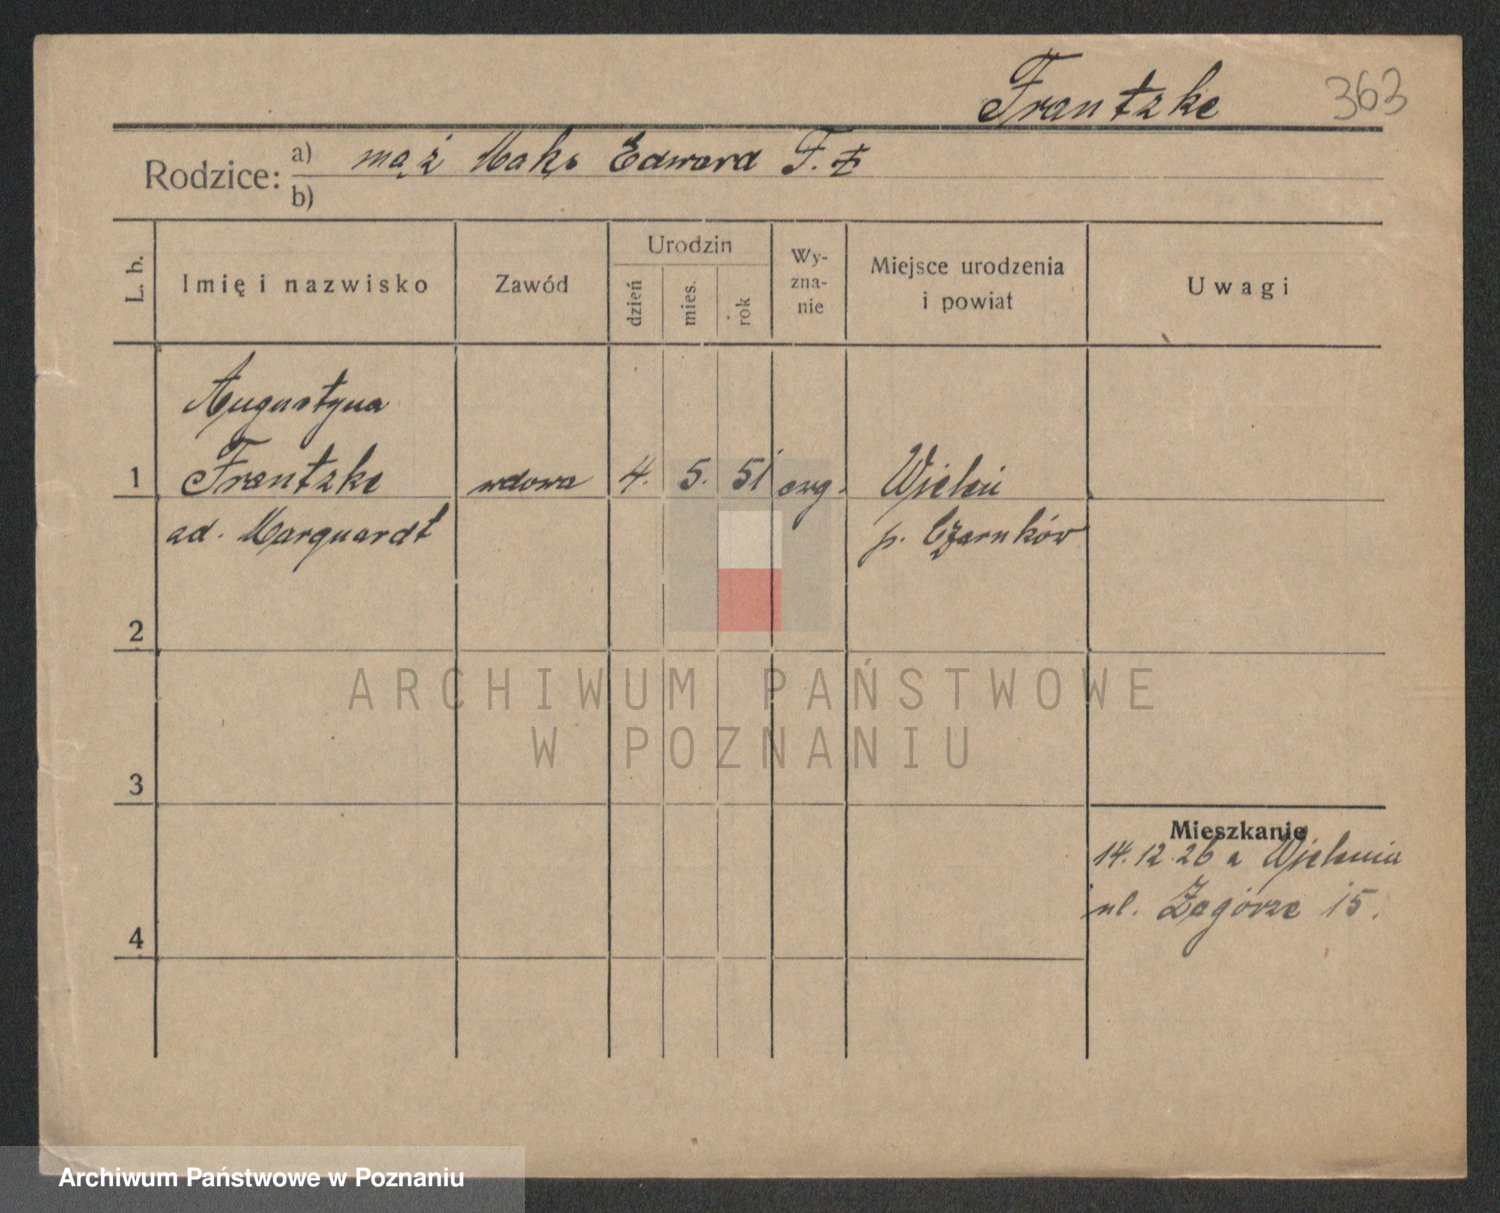 Frantzke 363
Rodzice: a) mąż Edward F. ‡
b)
L. b.
Imię i nazwisko
Zawód
Urodzin
dzień
mies.
rok
Wy-
zna-
nie
Miejsce urodzenia
i powiat
Uwagi
Augustyna
1 Frantzke wdowa 4. 5. 51 ewg. Wieleń
Marquardt p. Czarnków
2
3
Mieszkanie
14.12.26 z Wielenia
ul. Zagórze 15.
4
ARCHIWUM PAŃSTWOWE
W POZNANIU
Archiwum Państwowe w Poznaniu